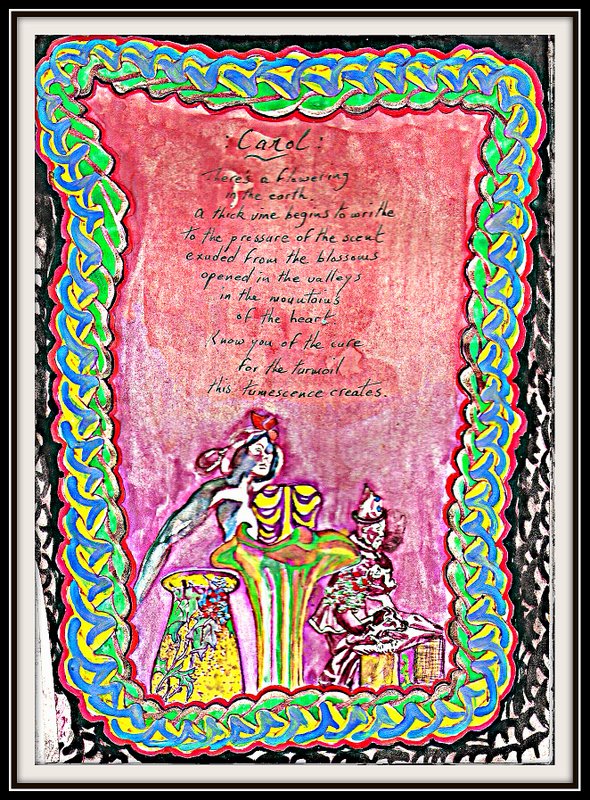 : Carol :
There's a flowering
in the earth.
a thick vine begins to writhe
to the pressure of the scent
exuded from the blossoms
opened in the valleys
in the mountains
of the heart.
Know you of the cure
for the turmoil
this tumescence creates.